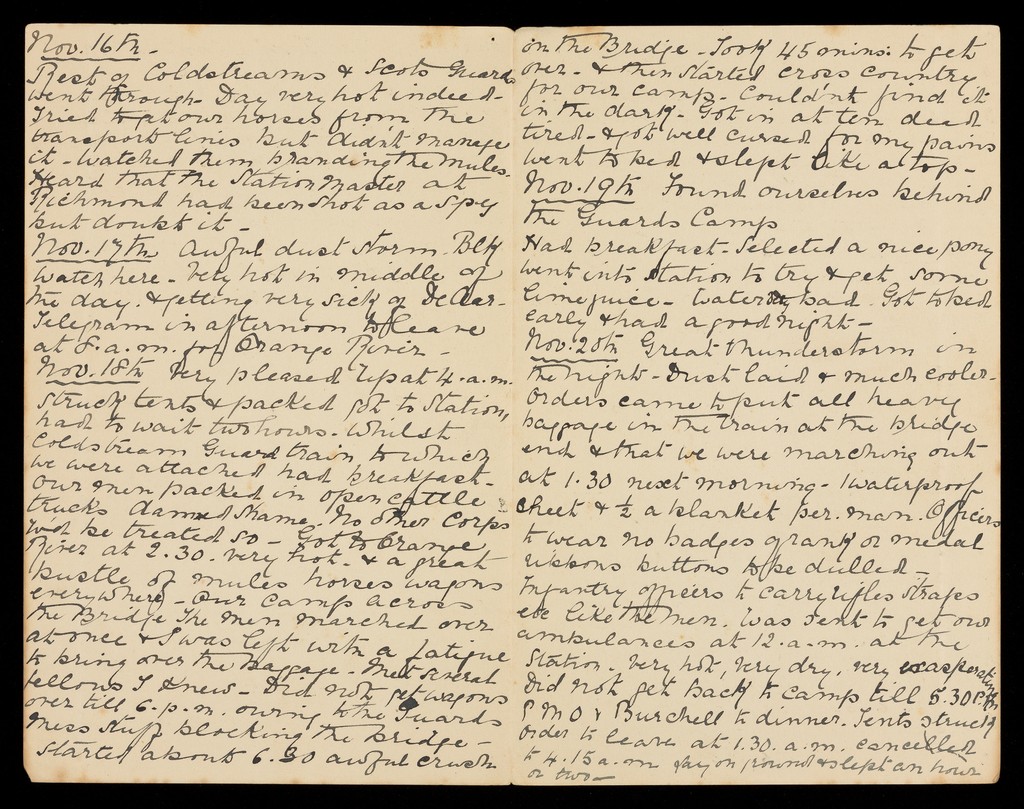 Nov. 16th -
Rest of Coldstreams & Scots Guards
went through - Day very hot indeed -
Tried to get our horses from the
transport lines but didn't manage
it - Watched them branding the mules.
Heard that the Station Master at
Richmond had been shot as a Spy
but doubt it -
Nov. 17th Awful dust storm. Blk
Watch here - Very hot in middle of
the day. & getting very sick of De Aar -
Telegram in afternoon to leave
at 8. a.m. for Orange River -
Nov. 18th Very pleased Up at 4. a.m.
Struck tents & packed got to Station,
had to wait two hours - Whilst
Coldstream Guard train to which
we were attached had breakfast -
Our men packed in open cattle
trucks damned shame. No other Corps
wd be treated so - Got to Orange
River at 2.30. very hot. & a great
bustle of mules horses wagons
everywhere - Our camp across
the Bridge The men marched over
at once & I was left with a fatigue
to bring over the baggage - Met several
fellows I knew - Did not get wagons
over till 6. p.m. owing to the Guards
mess stuff blocking the bridge -
Started about 6.30 awful crush
on the Bridge - Took 45 mins: to get
over - & then started cross country
for our camp - Couldn't find it
in the dark - Got in at ten dead
tired - & got well cursed for my pains
went to bed & slept like a top -
Nov. 19th Found ourselves behind
the Guards Camp
Had breakfast - Selected a nice pony
went into station to try & get some
lime juice - Water bad. Got to bed
early & had a good night -
Nov. 20th Great thunderstorm in
the night - Dust laid & much cooler -
Orders came to put all heavy
baggage in the train at the bridge
end & that we were marching out
at 1.30 next morning - 1 waterproof
sheet & ½ a blanket per. man. Officers
to wear no badges of rank or medal
ribbons buttons to be dulled -
Infantry officers to carry rifles straps
etc like the men. Was sent to get our
ambulances at 12. a.m. at the
Station. Very hot, very dry, very exasperating
Did not get back to camp till 5.30 P.M.
P M O & Burchell to dinner. Tents struck
Order to leave at 1.30. a.m. cancelled
to 4.15 a.m lay on ground & slept an hour
or two -